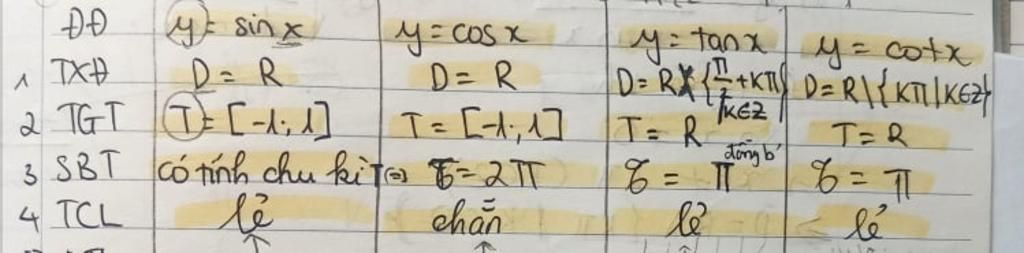 ĐĐ y = sin x y = cos x y = tan x y = cotx
1 TXĐ D = R D = R D = R \ {π/2 + Kπ | K∈Z} D = R \ {Kπ | K∈Z}
2 TGT T = [-1; 1] T = [-1; 1] T = R T = R
3 SBT có tính chu kì T(=) 𝜏 = 2π 𝜏 = π đồng b' 𝜏 = π
4 TCL lẻ chẵn lẻ lẻ